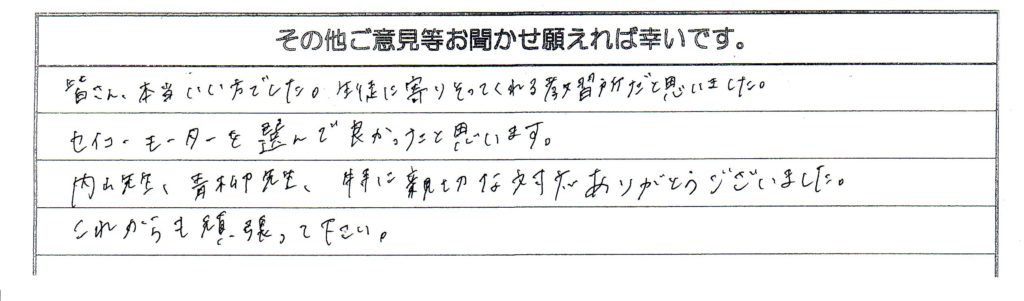 その他ご意見等お聞かせ願えれば幸いです。
皆さん、本当いい方でした。生徒に寄りそってくれる教習所だと思いました。
セイコーモーターを選んで良かったと思います。
内山先生、青柳先生、特に親切な対応ありがとうございました。
これからも頑張って下さい。